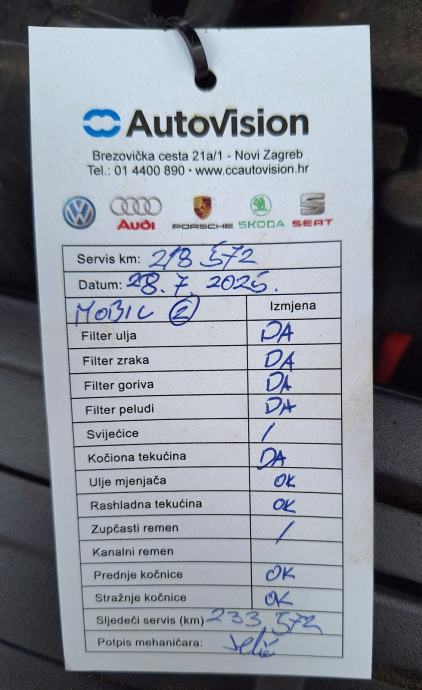 AutoVision
Brezovička cesta 21a/1 - Novi Zagreb
Tel.: 01 4400 890 • www.ccautovision.hr
Audi PORSCHE ŠKODA SEAT
Servis km: 218 572
Datum: 28. 7. 2025.
MOBIL Izmjena
Filter ulja DA
Filter zraka DA
Filter goriva DA
Filter peludi DA
Svijećice /
Kočiona tekućina DA
Ulje mjenjača OK
Rashladna tekućina OK
Zupčasti remen /
Kanalni remen
Prednje kočnice OK
Stražnje kočnice OK
Sljedeći servis (km) 233 572
Potpis mehaničara: